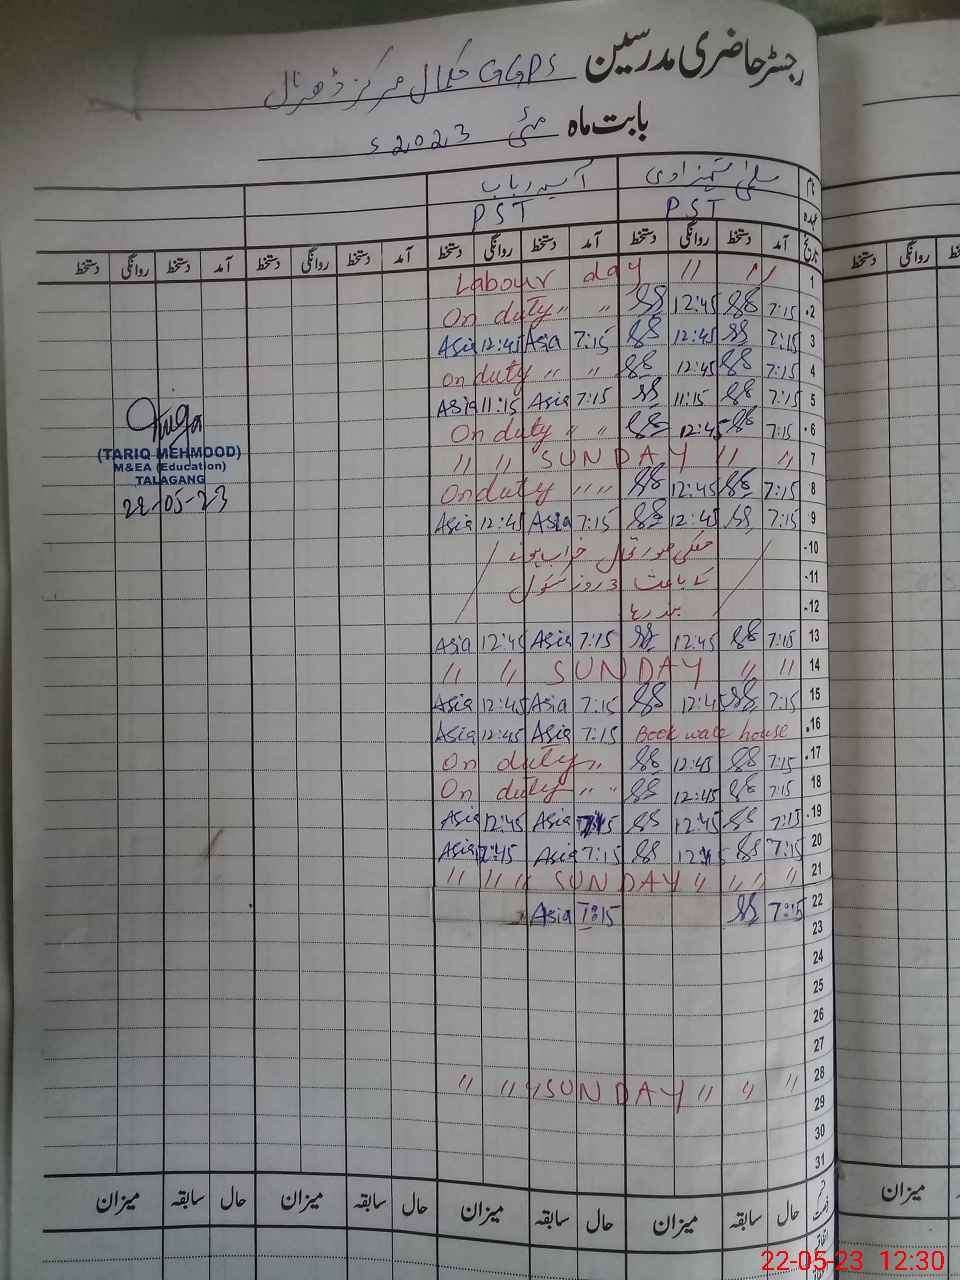 رجسٹر حاضری مدرسین GGPS مرکز ڈھرنال
بابت ماہ مئی 2023ء
نام سلمیٰ آسیہ رباب
عہدہ PST PST
تاریخ آمد دستخط روانگی دستخط آمد دستخط روانگی دستخط آمد دستخط روانگی دستخط آمد دستخط روانگی دستخط
1 Labour day " "
2 7:15 12:45 On duty " "
3 7:15 12:45 7:15 Asia 12:45 Asia
4 7:15 12:45 On duty " "
5 7:15 11:15 7:15 Asia 11:15 Asia
6 7:15 12:45 On duty " "
7 " " SUNDAY " "
8 7:15 12:45 On duty " "
9 7:15 12:45 7:15 Asia 12:45 Asia
10 ملکی صورتحال خراب ہونے
11 کے باعث 3 روز سکول
12 بند رہا
13 7:15 12:45 7:15 Asia 12:45 Asia
14 " " SUNDAY " "
15 7:15 12:45 7:15 Asia 12:45 Asia
16 Book ware house 7:15 Asia 12:45 Asia
17 7:15 12:45 On duty "
18 7:15 12:45 On duty " "
19 7:15 12:45 7:15 Asia 12:45 Asia
20 7:15 12:45 7:15 Asia 12:45 Asia
21 " " " SUNDAY " " " "
22 7:15 7:15 Asia
23
24
25
26
27
28 " " " SUNDAY " " "
29
30
31
حال سابقہ میزان حال سابقہ میزان حال سابقہ میزان حال سابقہ میزان
(TARIQ MEHMOOD)
M&EA (Education)
TALAGANG
22-05-23
دستخط روانگی
میزان
22-05-23 12:30